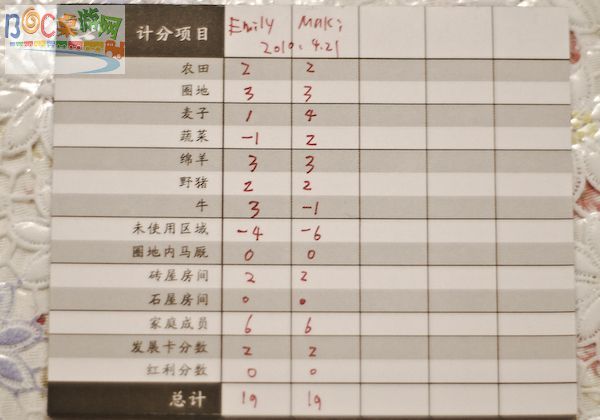 BOC桌游网
计分项目 Emily Maki
2010.4.21
农田 2 2
圈地 3 3
麦子 1 4
蔬菜 -1 2
绵羊 3 3
野猪 2 2
牛 3 -1
未使用区域 -4 -6
圈地内马厩 0 0
砖屋房间 2 2
石屋房间 0 0
家庭成员 6 6
发展卡分数 2 2
红利分数 0 0
总计 19 19